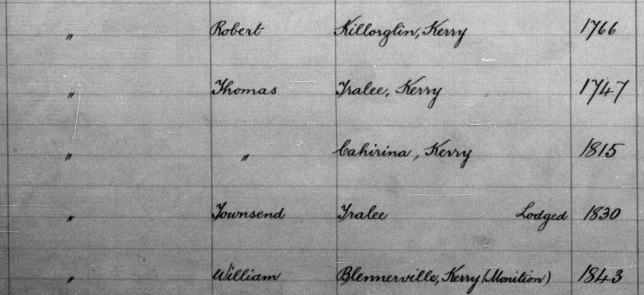 " Robert Killorglin, Kerry 1766
" Thomas Tralee, Kerry 1747
" " Cahirina, Kerry 1815
" Townsend Tralee Lodged 1830
" William Blennerville, Kerry (Monition) 1843